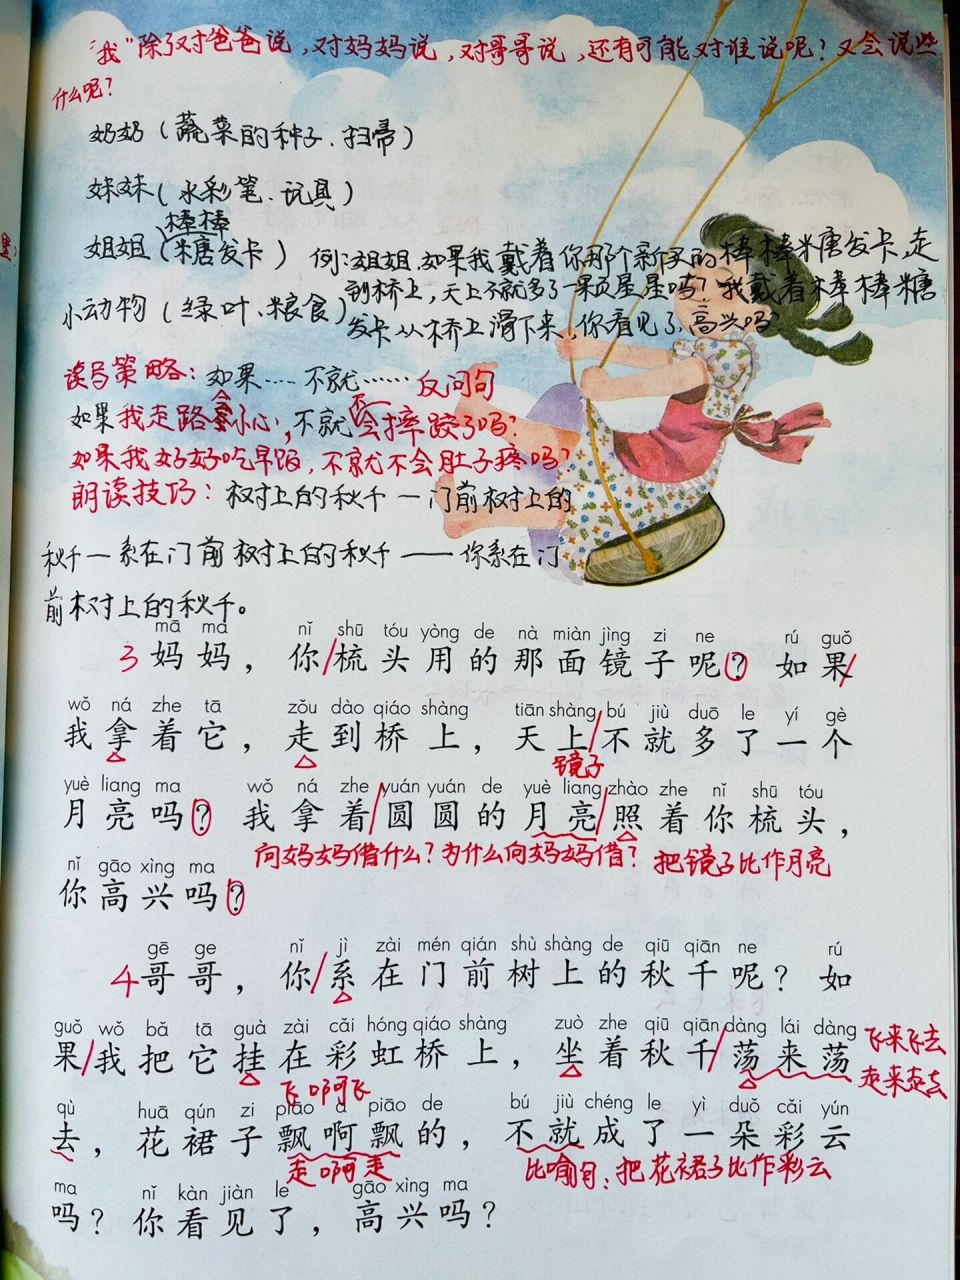 “我”除了对爸爸说，对妈妈说，对哥哥说，还有可能对谁说呢？又会说些
什么呢？
奶奶（蔬菜的种子、扫帚）
妹妹（水彩笔、玩具）
棒棒
姐姐（糖发卡）例：姐姐，如果我戴着你那个新买的棒棒糖发卡，走
到桥上，天上不就多了一颗星星吗？我戴着棒棒糖
小动物（绿叶、粮食）发卡从桥上滑下来，你看见了，高兴吗？
读写策略：如果……不就……反问句
如果我走路小心，不就不会摔跤了吗？
如果我好好吃早饭，不就不会肚子疼吗？
朗读技巧：树上的秋千—门前树上的
秋千—系在门前树上的秋千——你系在门
前树上的秋千。
mā ma nǐ shū tóu yòng de nà miàn jìng zi ne rú guǒ
3 妈妈，你/梳头用的那面镜子呢？如果/
wǒ ná zhe tā zǒu dào qiáo shàng tiān shàng bú jiù duō le yí gè
我拿着它，走到桥上，天上/不就多了一个
镜子
yuè liang ma wǒ ná zhe yuán yuán de yuè liang zhào zhe nǐ shū tóu
月亮吗？我拿着/圆圆的月亮/照着你梳头，
向妈妈借什么？为什么向妈妈借？把镜子比作月亮
nǐ gāo xìng ma
你高兴吗？
gē ge nǐ jì zài mén qián shù shàng de qiū qiān ne rú
4 哥哥，你/系在门前树上的秋千呢？如
guǒ wǒ bǎ tā guà zài cǎi hóng qiáo shàng zuò zhe qiū qiān dàng lái dàng
果/我把它挂在彩虹桥上，坐着秋千/荡来荡
飞来飞去
走来走去
飞啊飞
qù huā qún zi piāo a piāo de bú jiù chéng le yì duǒ cǎi yún
去，花裙子飘啊飘的，不就成了一朵彩云
走啊走
比喻句：把花裙子比作彩云
ma nǐ kàn jiàn le gāo xìng ma
吗？你看见了，高兴吗？